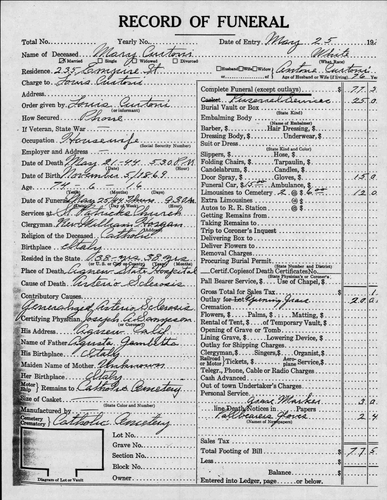 RECORD OF FUNERAL
Total No. Yearly No. Date of Entry May 25 19
Name of Deceased Mary Curtoni White
Married Single Widowed Divorced (What Race)
Residence 235 Empire St. Husband Widow of Antone Curtoni
Charge to Louis Curtoni Age of Husband or Wife (if living) 76 Yrs.
Address
Order given by Louis Curtoni
(or informant)
How Secured Phone
If Veteran, State War
Occupation Housewife
(Social Security Number)
Employer and Address
Date of Death May 21-44 5:30 P.M.
Date of Birth November 5, 1869
Age 74 - 6 - 16
Date of Funeral May 25/44 Thurs 9:30 A.M.
Services at St Patricks Church
Clergyman Rev William Horgan
Religion of the Deceased Catholic
Birthplace Italy
Resided in the State 38 yrs 38 yrs
Place of Death Agnew State Hospital
Cause of Death Arterio Sclerosis
Contributory Causes
Generalized Arterio Sclerosis
Certifying Physician Joseph Simpson
His Address Agnew Calif
Name of Father
His Birthplace Italy
Maiden Name of Mother Unknown
Her Birthplace Italy
Remains to Catholic Cemetery
Size of Casket
(State Color and Number)
Manufactured by
Cemetery Catholic Cemetery
Lot No.
Grave No.
Section No.
Block No.
Owner
Diagram of Lot or Vault
Complete Funeral (except outlays) $ 773
Casket Personal Service 250
Burial Vault or Box
(State Kind)
Embalming Body
(Name of Embalmer)
Barber, $ Hair Dressing, $
Dressing Body, $ Underwear, $
Suit or Dress
(State Kind and Color)
Slippers, $ Hose, $
Folding Chairs, $ Tarpaulin, $
Candelabrum, $ Candles, $
Door Spray, $ Gloves, $ 150
Funeral Car, $ 15.00 Ambulance, $
Limousines to Cemetery 2 @ 6.00 $ 120
Extra Limousines @ $
Autos to R. R. Station @ $
Getting Remains from
Taking Remains to
Trip to Coroner's Inquest
Delivering Box to
Deliver Flowers to
Removal Charges
Procuring Burial Permit
Certif. Copies of Death Certificate No.
(State Physician's or Coroner's)
Pall Bearer Service, $ Use of Chapel, $
Gross Total for Sales Tax $
Outlay for Lot Opening Grave 200
Cremation
Flowers, $ Palms, $ Matting, $
Rental of Tent, $ of Temporary Vault, $
Opening of Grave or Tomb
Lining Grave, $ Lowering Device, $
Outlay for Shipping Charges
Clergyman, $ Singers, $ Organist, $
Railroad or Motor Tickets, $ Aeroplane Service, $
Telegr., Phone, Cable or Radio Charges
Cash Advanced
Out of town Undertaker's Charges
Personal Service
Grave Marker 30
line Death Notices in Papers
Pallbearers Gloves 24
(Names of Newspapers)
Sales Tax
Total Footing of Bill $ 775
Less
Balance $
Entered into Ledger, page or below.